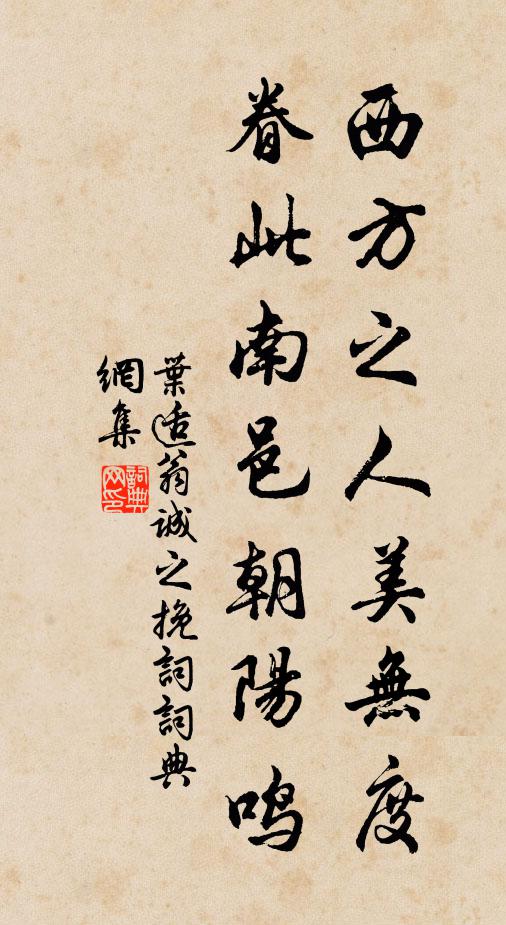 西方之人美無度
眷此南邑朝陽鳴
葉適翁誠之挽詞詞典
網集
詞典
网印